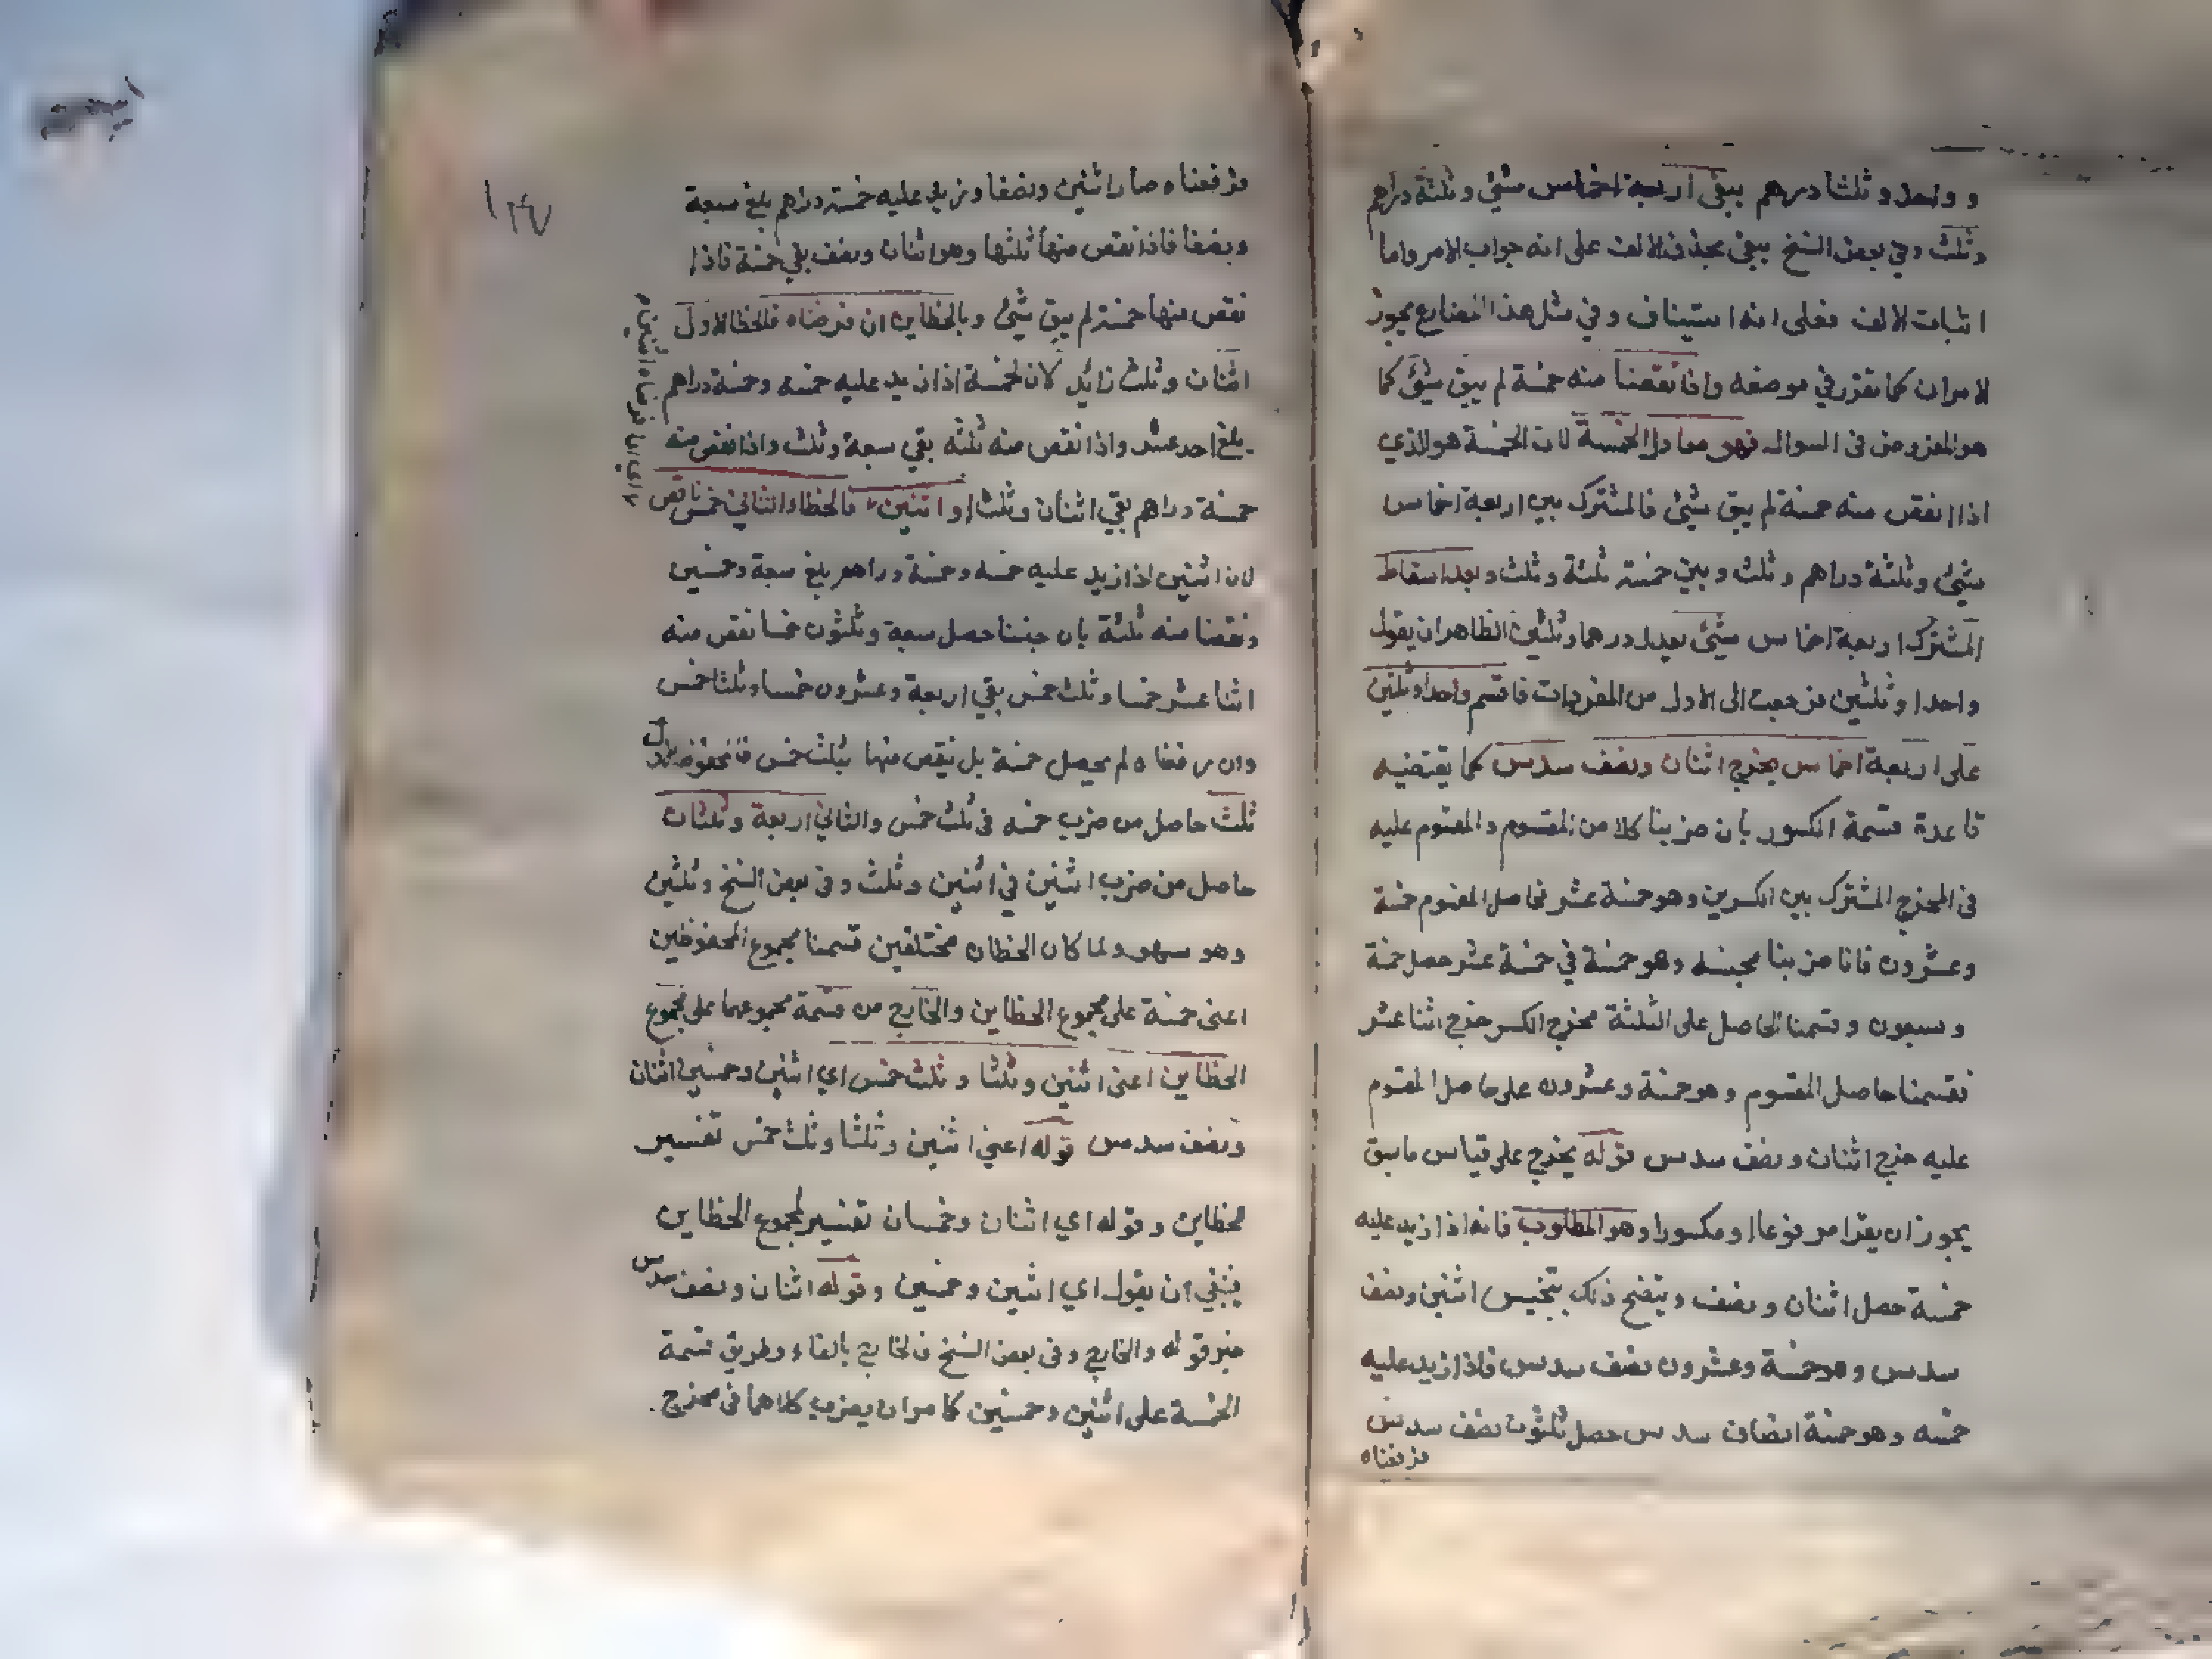 و واحد و ثلثا درهم يبقى اربعة اخماس شئ و ثلثة دراهم
وثلث وفي بعض النسخ يبقى بحذف الالف على انه جواب الامر واما
اثبات الالف فعلى انه استيناف وفي مثل هذا المضارع يجوز
الامران كما تقرر في موضعه واذا نقصنا منه خمسة لم يبق شئ كما
هو المفروض في السوال فهو معادل الخمسة لان الخمسة هو الذي
اذا انقص منه خمسة لم يبق شئ فالمشترك بين اربعة اخماس
شئ وثلثة دراهم وثلث وبين خمسة ثلثة وثلث وبعد اسقاط
المشترك اربعة اخماس شئ يعدل درهما وثلثين الظاهر ان يقول
واحدا وثلثين فرجعت الى الاول من المفردات فاقسم واحدا وثلثين
على اربعة اخماس يخرج اثنان ونصف سدس كما يقتضيه
قاعدة قسمة الكسور بان ضربنا كلا من المقسوم والمقسوم عليه
فى المخرج المشترك بين الكسرين وهو خمسة عشر فحاصل المقسوم خمسة
وعشرون فانا ضربنا مجنسه وهو خمسة في خمسة عشر حصل خمسة
وسبعون وقسمنا الحاصل على الثلثة مخرج الكسر خرج اثنا عشر
فقسمنا حاصل المقسوم وهو خمسة وعشرون على حاصل المقسوم
عليه خرج اثنان ونصف سدس قوله يخرج على قياس ما سبق
يجوز ان يقرا مرفوعا او مكسورا وهو المطلوب فانه اذا زيد عليه
خمسة حصل اثنان ونصف ويتضح ذلك بتجنيس اثنين ونصف
سدس وهو خمسة وعشرون نصف سدس فاذا زيد عليه
خمسه وهو خمسة انصاف سدس حصل ثلثون نصف سدس
فرفعناه
١٣٧
فرفعناه صار اثنين ونصفا ونزيد عليه خمسة دراهم بلغ سبعة
ونصفا فاذا نقص منها ثلثها وهو اثنان ونصف بقي خمسة فاذا
نقص منها خمسة لم يبق شئ وبالخطاين ان فرضناه فالخطا الاول
اثنان وثلث زائد لان الخمسة اذا زيد عليه خمسه وخمسة دراهم
بلغ احد عشر واذا نقص منه ثلثه بقي سبعة وثلث واذا نقص منه
خمسة دراهم بقي اثنان وثلث او اثنين فالخطاء الثاني خمس ناقص
لان اثنين اذا زيد عليه خمسه وخمسة دراهم بلغ سبعة وخمسين
ونقصنا منه ثلثة بان جنسنا حصل سبعة وثلثون خمسا نقص منه
اثنا عشر خمسا وثلث خمس بقي اربعة وعشرون خمسا وثلثا خمس
وان رفعناه لم يحصل خمسة بل نقص منها بثلث خمس فالمحفوظ الاول
ثلث حاصل من ضرب خمسه فى ثلث خمس والثاني اربعة وثلثان
حاصل من ضرب اثنين في اثنين وثلث وفى بعض النسخ وثلثين
وهو سهو ولما كان الخطان مختلفين قسمنا مجموع المحفوظين
اعنى خمسة على مجموع الخطاين والخارج من قسمة مجموعهما على مجموع
الخطاين اعنى اثنين وثلثا وثلث خمس اي اثنين وخمسين اثنان
ونصف سدس قوله اعني اثنين وثلثا وثلث خمس تفسير
للخطاين وقوله اي اثنان وخمسان تفسير لمجموع الخطاين
ينبغي ان يقول اي اثنين وخمسين وقوله اثنان ونصف سدس
خبر قوله والخارج وفى بعض النسخ فالخارج بالفاء وطريق قسمة
الخمسة على اثنين وخمسين كما مر ان يضرب كلاهما فى مخرج